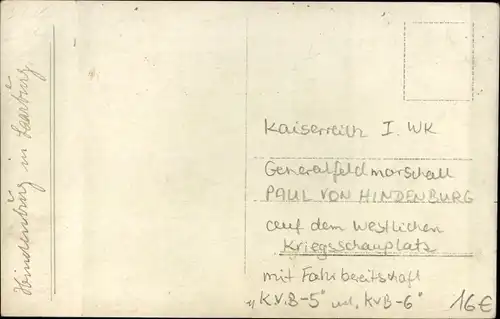 Hindenburg in Saarburg
Kaiserreich I. WK
Generalfeldmarschall
PAUL VON HINDENBURG
auf dem Westlichen
Kriegsschauplatz
mit Fahrbereitschaft
"K.V.B-5" und. KVB-6"
16€